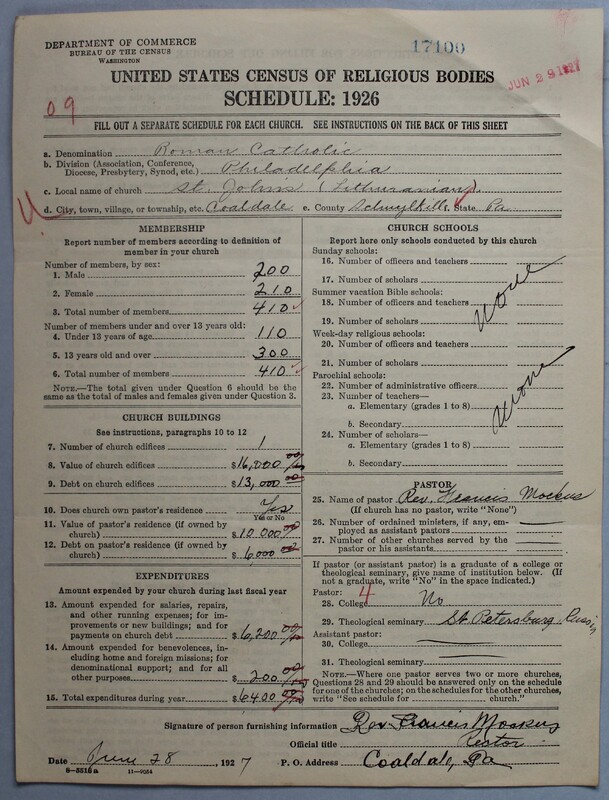 DEPARTMENT OF COMMERCE
BUREAU OF THE CENSUS
WASHINGTON
17100
JUN 29 1927
UNITED STATES CENSUS OF RELIGIOUS BODIES
SCHEDULE: 1926
09
FILL OUT A SEPARATE SCHEDULE FOR EACH CHURCH. SEE INSTRUCTIONS ON THE BACK OF THIS SHEET
a. Denomination Roman Catholic
b. Division (Association, Conference, Diocese, Presbytery, Synod, etc.) Philadelphia
c. Local name of church St. Johns (Lithuanian)
d. City, town, village, or township, etc. Coaldale e. County Schuylkill, State Pa.
MEMBERSHIP
Report number of members according to definition of
member in your church
Number of members, by sex:
1. Male 200
2. Female 210
3. Total number of members 410
Number of members under and over 13 years old:
4. Under 13 years of age 110
5. 13 years old and over 300
6. Total number of members 410
NOTE.—The total given under Question 6 should be the
same as the total of males and females given under Question 3.
CHURCH BUILDINGS
See instructions, paragraphs 10 to 12
7. Number of church edifices 1
8. Value of church edifices $16,000 00
9. Debt on church edifices $13,000 00
10. Does church own pastor's residence Yes
Yes or No
11. Value of pastor's residence (if owned by
church) $10000 00
12. Debt on pastor's residence (if owned by
church) $6000 00
EXPENDITURES
Amount expended by your church during last fiscal year
13. Amount expended for salaries, repairs,
and other running expenses; for im-
provements or new buildings; and for
payments on church debt $6,200 00
14. Amount expended for benevolences,
including home and foreign missions; for
denominational support; and for all
other purposes $200 00
15. Total expenditures during year $6400 00
CHURCH SCHOOLS
Report here only schools conducted by this church
Sunday schools:
16. Number of officers and teachers
17. Number of scholars
Summer vacation Bible schools:
18. Number of officers and teachers
None
19. Number of scholars
Week-day religious schools:
20. Number of officers and teachers
21. Number of scholars
Parochial schools:
22. Number of administrative officers
23. Number of teachers—
a. Elementary (grades 1 to 8)
None
b. Secondary
24. Number of scholars—
a. Elementary (grades 1 to 8)
b. Secondary
PASTOR
25. Name of pastor Rev. Francis Mockus
(If church has no pastor, write "None")
26. Number of ordained ministers, if any, em-
ployed as assistant pastors
27. Number of other churches served by the
pastor or his assistants
If pastor (or assistant pastor) is a graduate of a college or
theological seminary, give name of institution below. (If
not a graduate, write "No" in the space indicated.)
Pastor: 4
28. College No
29. Theological seminary St. Petersburg, Russia
Assistant pastor:
30. College
31. Theological seminary
NOTE.—Where one pastor serves two or more churches,
Questions 28 and 29 should be answered only on the schedule
for one of the churches; on the schedules for the other churches,
write "See schedule for church."
Signature of person furnishing information Rev. Francis Mockus
Official title Rector
Date June 28, 1927 P. O. Address Coaldale, Pa
8-5518a 11-9054